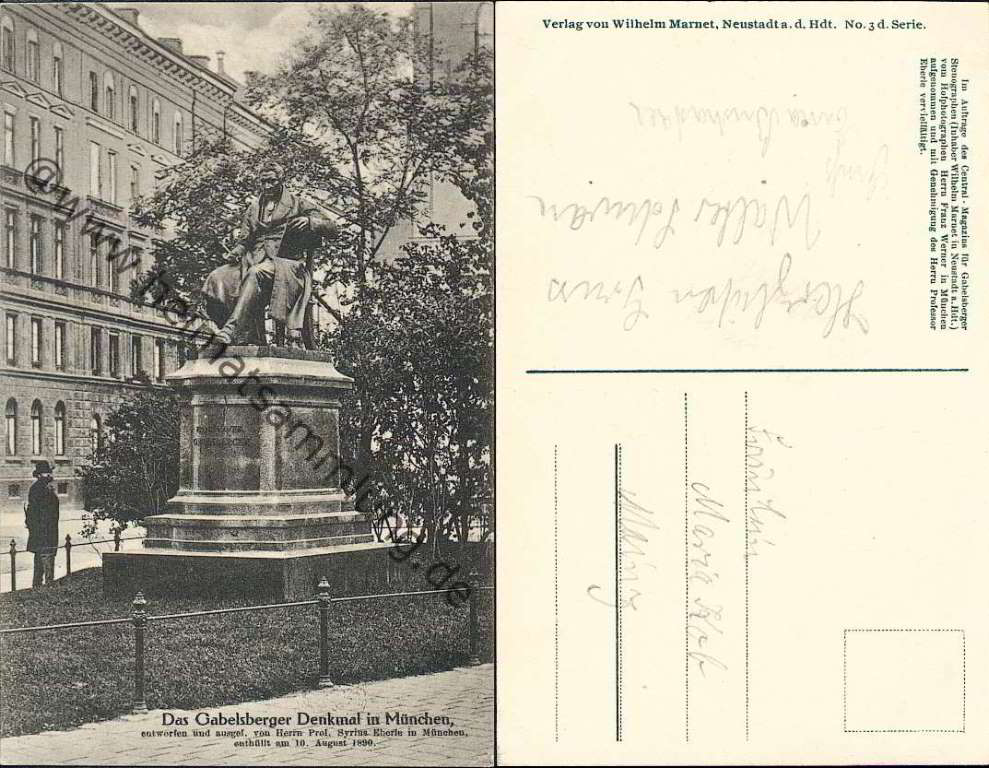 FRANZ XAVER
GABELSBERGER
@www.heimatsammlung.de
Das Gabelsberger Denkmal in München,
entworfen und ausgef. von Herrn Prof. Syrius Eberle in München,
enthüllt am 10. August 1890.
Verlag von Wilhelm Marnet, Neustadt a. d. Hdt. No. 3 d. Serie.
Im Auftrage des Central-Magazins für Gabelsberger
Stenographen (Inhaber Wilhelm Marnet in Neustadt a. Hdt.)
vom Hofphotographen Herrn Franz Werner in München
aufgenommen und mit Genehmigung des Herrn Professor
Eberle vervielfältigt.
Herzlichen Gruss
Walter
Fräulein
Maria
Mainz